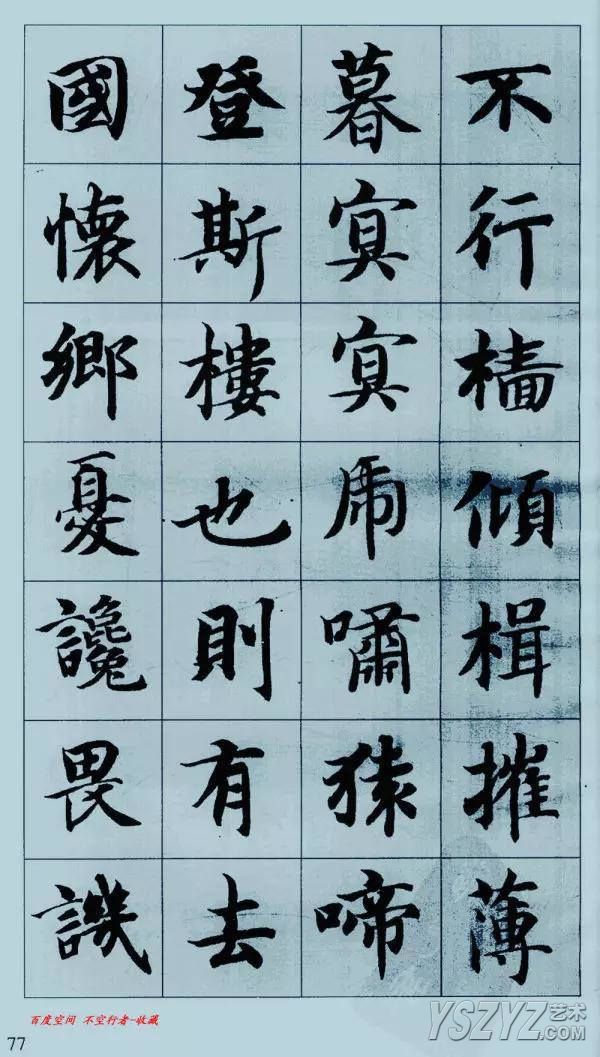 不行檣傾楫摧薄
暮冥冥虎嘯猿啼
登斯樓也則有去
國懷鄉憂讒畏譏
百度空间 不空行者-收藏
77
YSZYZ艺术.COM